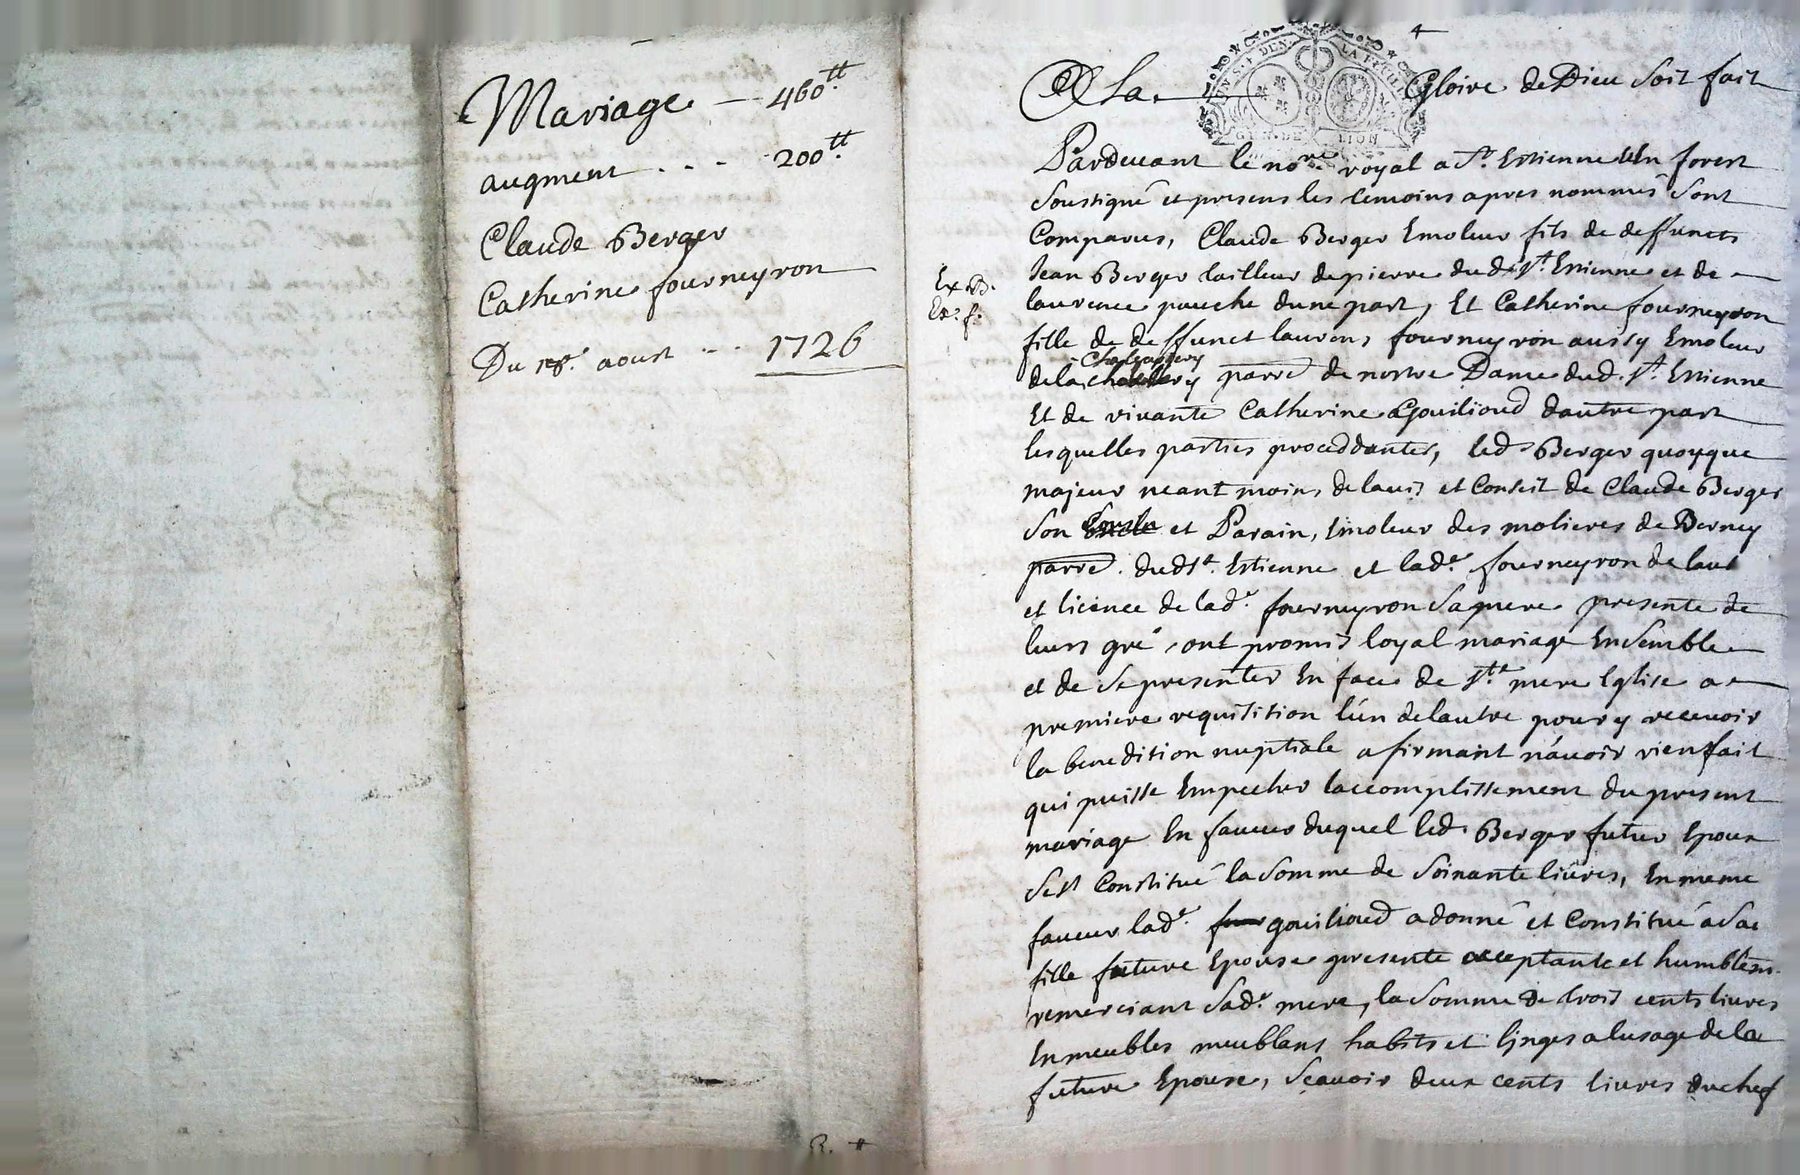 Mariage — 460tt
augment . . - 200tt
Claude Berger
Catherine fourneyron
Du 18e aoust -- . 1726
R. #
A La Gloire de Dieu soit fait
GEN. DE LION
Pardevant le nore royal a St. Estienne En forest
soussigné et presens les temoins apres nommés sont
Comparus, Claude Berger Emoleur fils de deffuncts
Jean Berger tailleur de pierre dud St. Estienne et de
laurence pauche dune part, Et Catherine fourneyron
Ex. B.
Ex. f.
fille de deffunct laurens fourneyron aussy Emoleur
dela parre de nostre Dame dud. St. Estienne
Et de vivante Catherine Gouilioud dautre part
lesquelles parties proceddantes, led Berger quoyque
majeur neantmoins de lavis et Conseil de Claude Berger
son et Parain, Emoleur des molieres de Berney
parre. dud St. Estienne et lade. fourneyron de laut
et licence de lade. fourneyron sa mere presente de
leurs gré, ont promis loyal mariage Ensemble
et de se presenter En face de Ste mere Eglise a
premiere requisition lún delautre pour y recevoir
la benedition nuptiale afirmant n'avoir rien fait
qui puisse Empecher laccomplissement du present
mariage En faveur duquel led. Berger futur Epoux
sest Constitué la somme de soixante livres, En meme
faveur lade. gouilioud a donné et Constitué a sa
fille future Epouse presente acceptante et humblem.
remerciant sade. mere, la somme de trois cents livres
En meubles meublans habits et linges a lusage de la
future Epouse, scavoir deux cents livres du chef